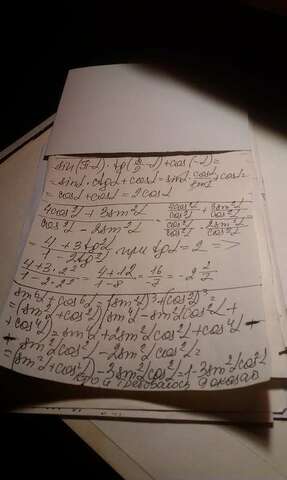 sin(π-α)·tg(π/2-α)+cos(-α)=
=sinα·ctgα+cosα=sinα·cosα/sinα+cosα=
cosα+cosα=2cosα
4cos²α+3sin²α / cos²α-2sin²α = 4cos²α/cos²α+3sin²α/cos²α / cos²α/cos²α-2sin²α/cos²α
= 4+3tg²α / 1-2tg²α при tgα=2 =>
4+3·2² / 1-2·2² = 4+12 / 1-8 = 16/-7 = -2 2/7
sin⁶α+cos⁶α=(sin²α)³+(cos²α)³=
=(sin²α+cos²α)(sin⁴α-sin²αcos²α+
+cos⁴α)=sin⁴α+2sin²αcos²α+cos⁴α-
-sin²αcos²α-2sin²αcos²α=
=(sin²α+cos²α)-3sin²αcos²α=1-3sin²αcos²α
что и требовалось доказать